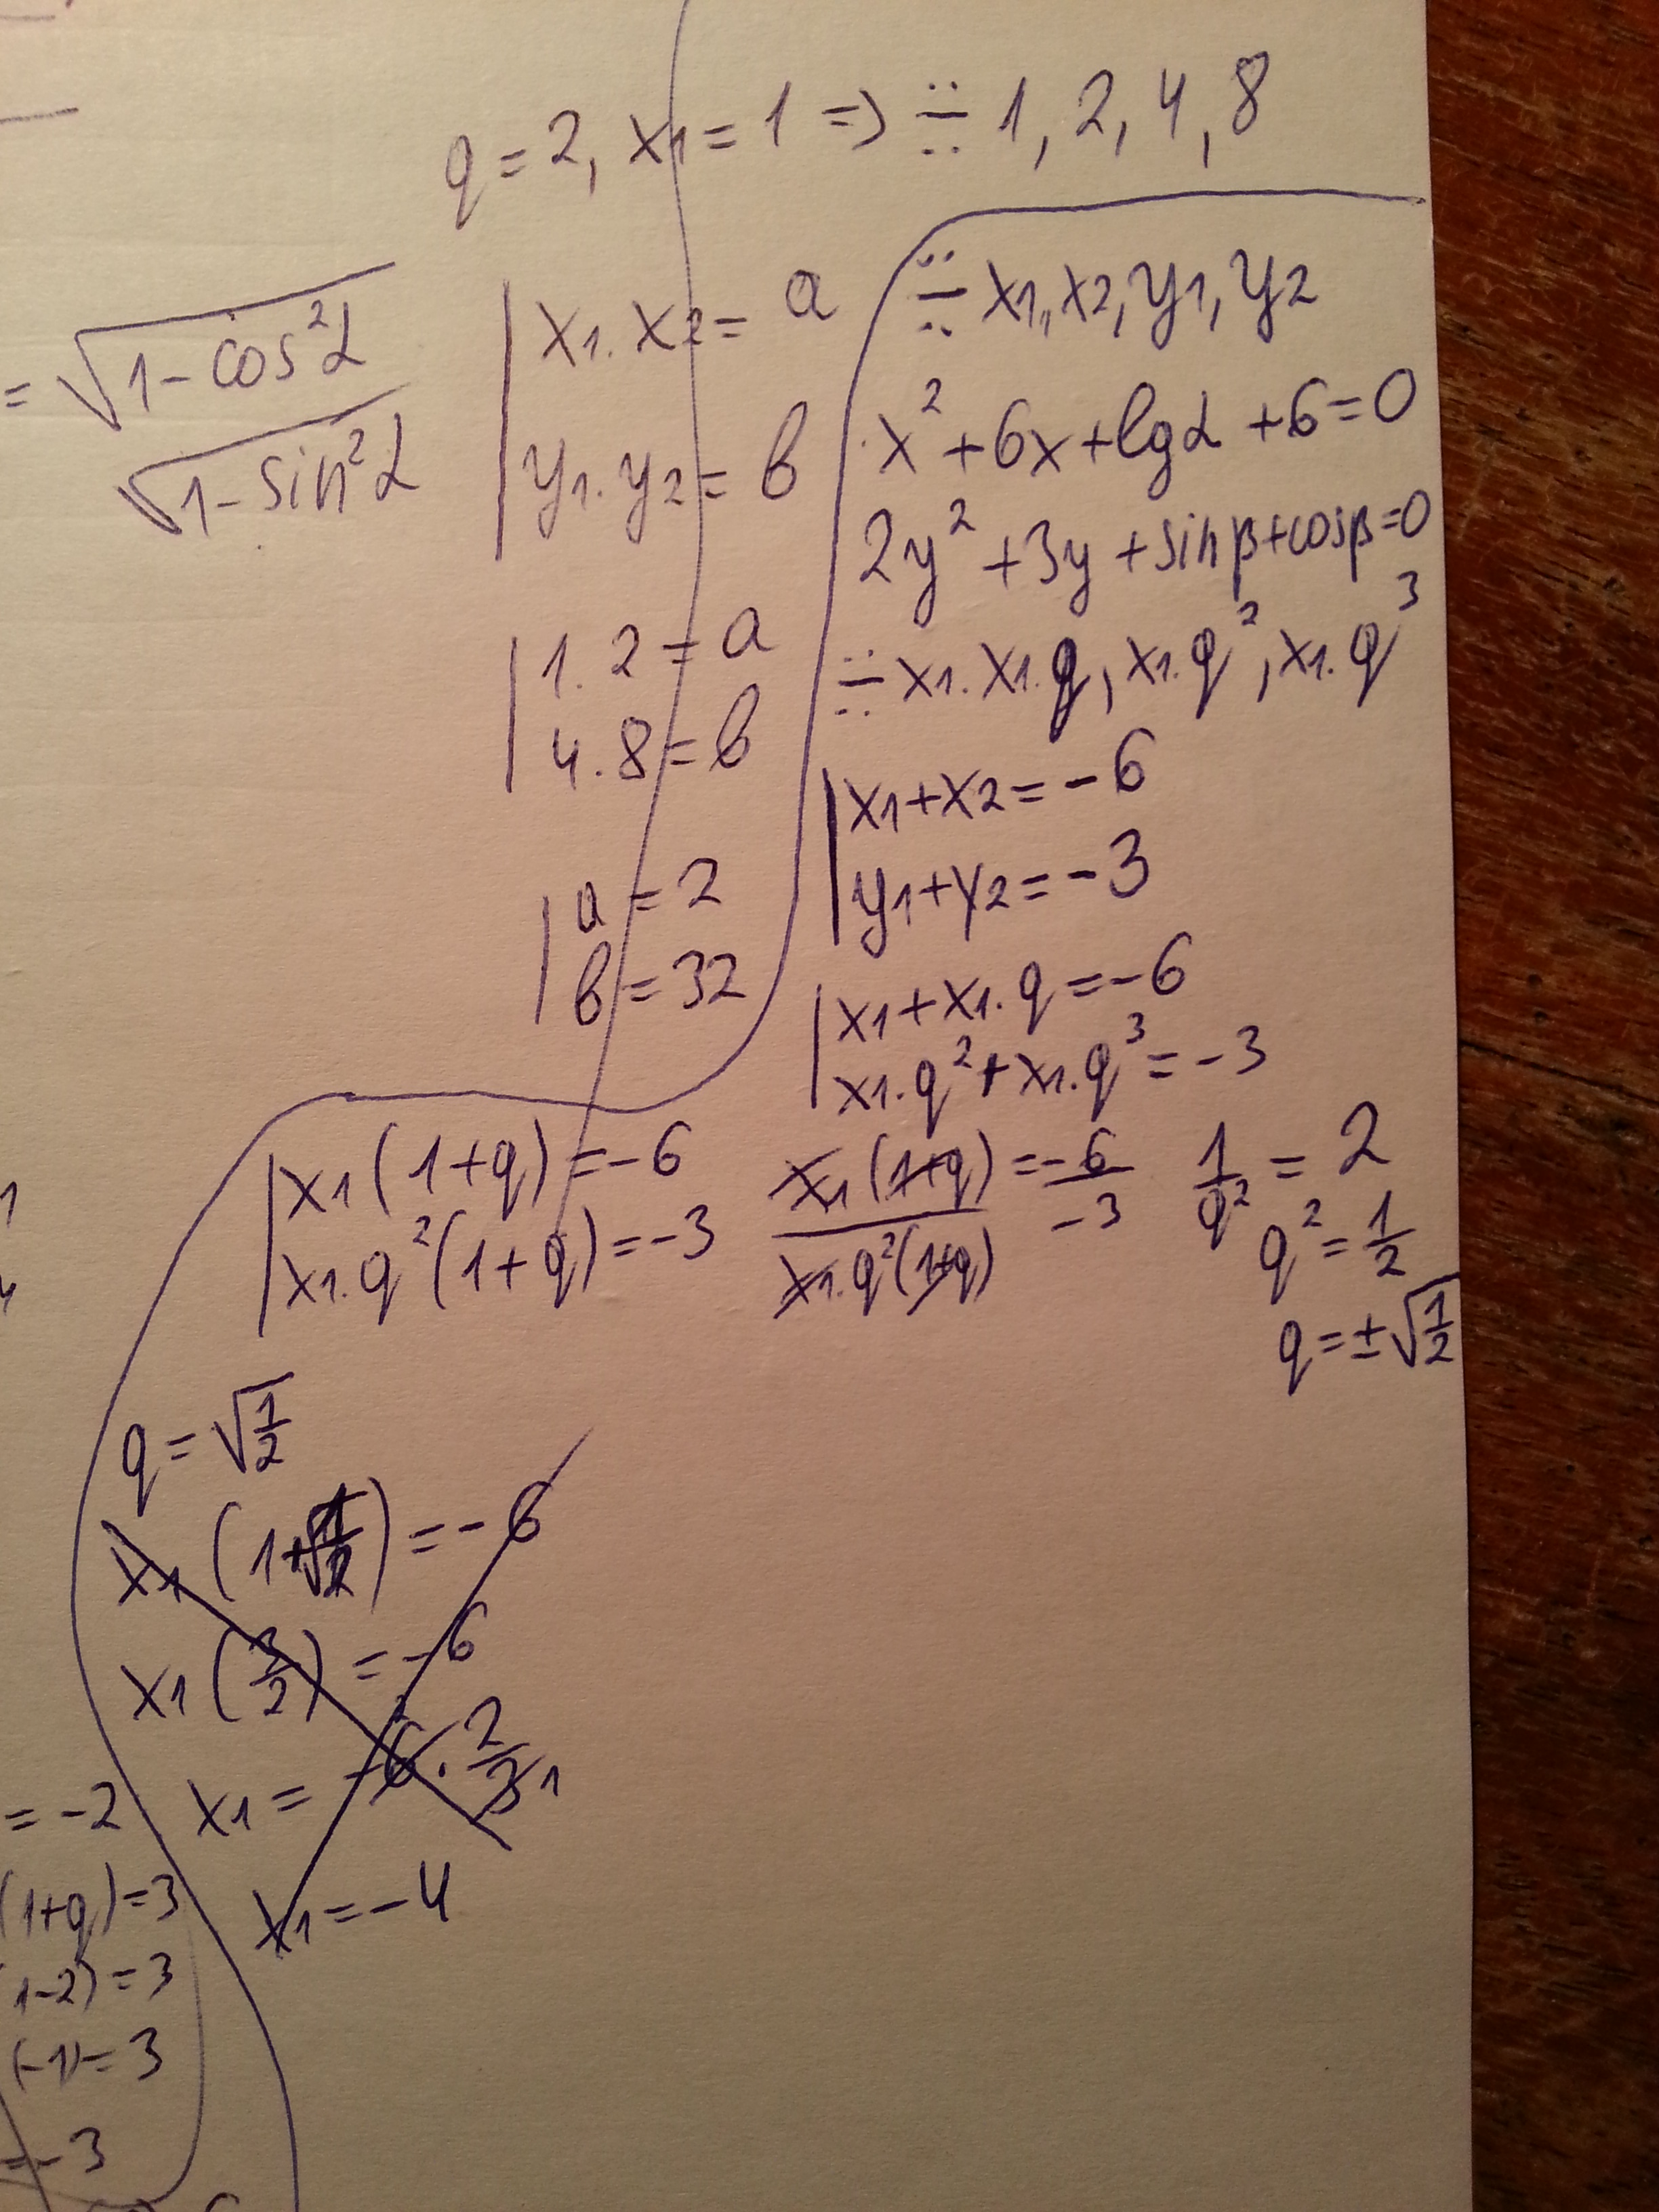 q = 2, x1 = 1 => ÷ 1, 2, 4, 8
= √1 - cos²α
√1 - sin²α
x1 . x2 = a
y1 . y2 = b
1 . 2 = a
4 . 8 = b
a = 2
b = 32
÷ x1, x2, y1, y2
x² + 6x + lgα + 6 = 0
2y² + 3y + sinβ + cosβ = 0
÷ x1. x1.q, x1.q², x1.q³
x1 + x2 = -6
y1 + y2 = -3
x1 + x1.q = -6
x1.q² + x1.q³ = -3
x1 (1+q) = -6
x1.q² (1+q) = -3
x1 (1+q) / x1.q² (1+q) = -6 / -3
1/q² = 2
q² = 1/2
q = ±√1/2
q = √1/2
x1 (1+1/2) = -6
x1 (3/2) = -6
x1 = -6 . 2/3 1
x1 = -4
= -2
(1+q) = 3
1-2) = 3
(-1) = 3
= -3